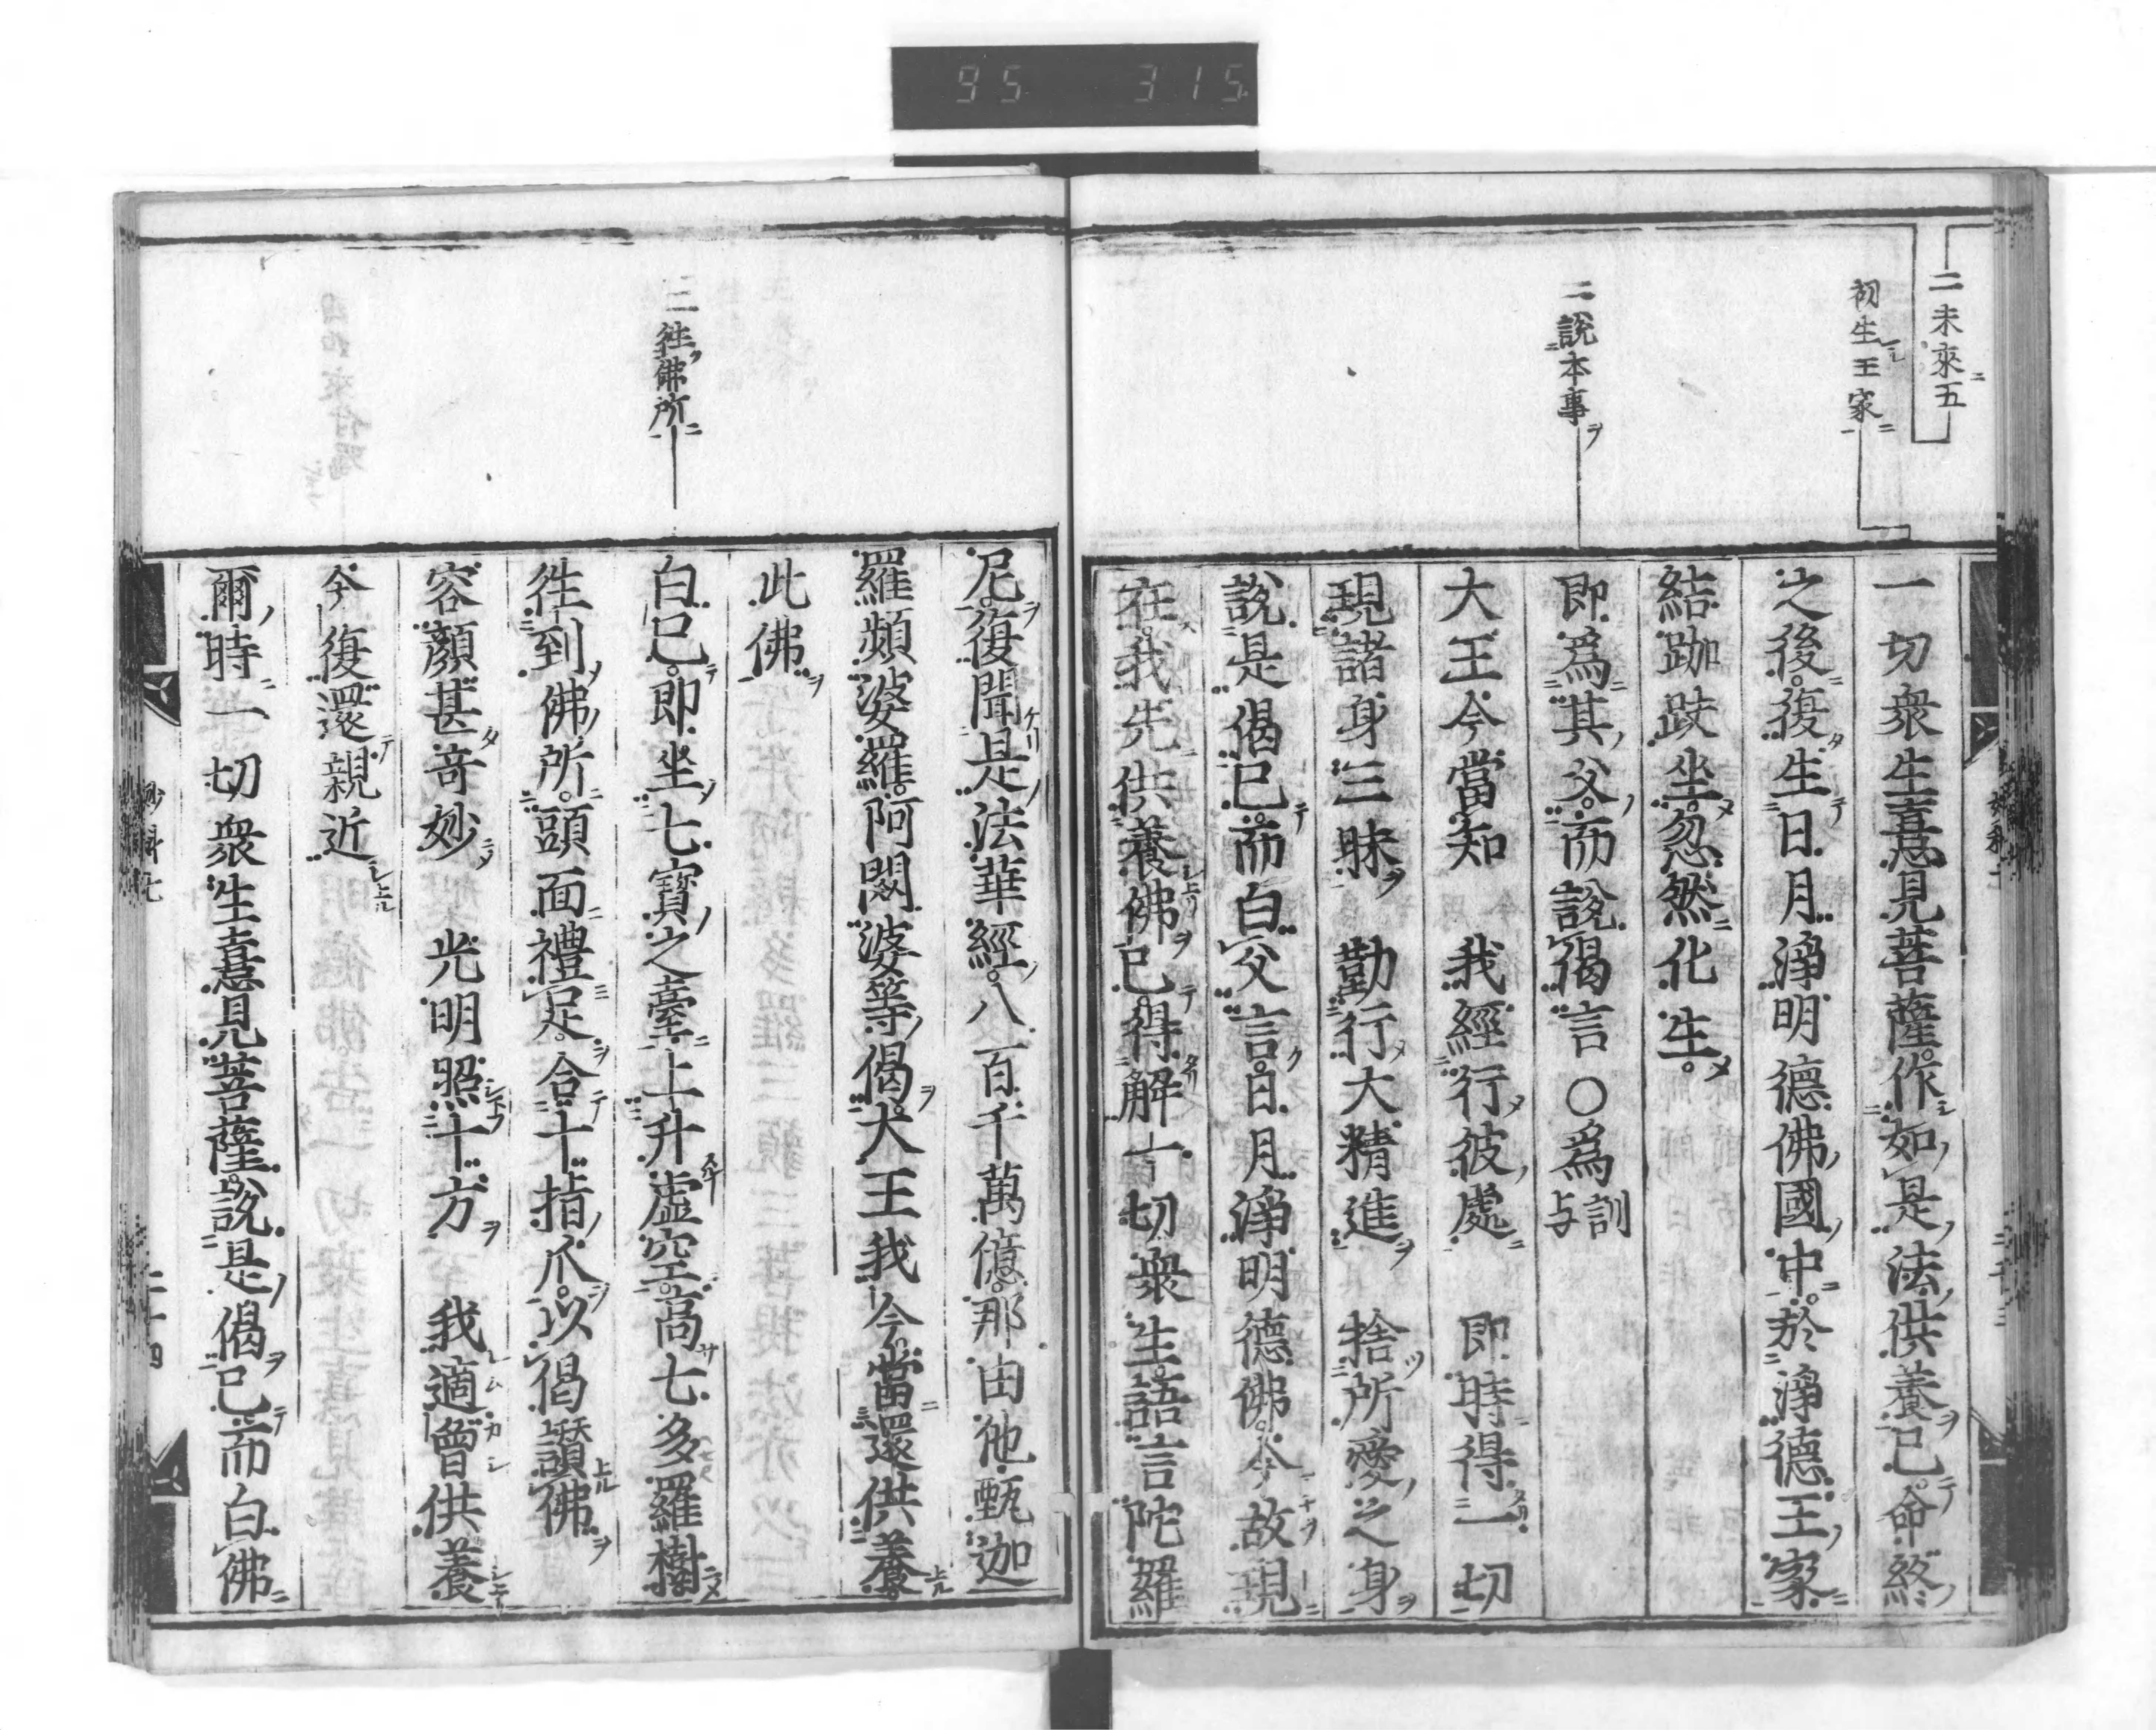 95 315
二未來五
初生王家
二說本事
一切衆生憙見菩薩作如是法供養已命終
之後復生日月淨明德佛國中於淨德王家
結跏趺坐忽然化生
即爲其父而說偈言○爲訓与
大王今當知 我經行彼處 即時得一切
現諸身三昧 勤行大精進 捨所愛之身
說是偈已而白父言日月淨明德佛今故現
在我先供養佛已得解一切衆生語言陀羅
二徃佛所
尼復聞是法華經八百千萬億那由他甄迦
羅頻婆羅阿閦婆等偈大王我今當還供養
此佛
白已即坐七寶之臺上升虛空高七多羅樹
徃到佛所頭面禮足合十指爪以偈讚佛
容顏甚奇妙 光明照十方 我適曾供養
今復還親近
爾時一切衆生憙見菩薩說是偈已而白佛
妙科七
二十四